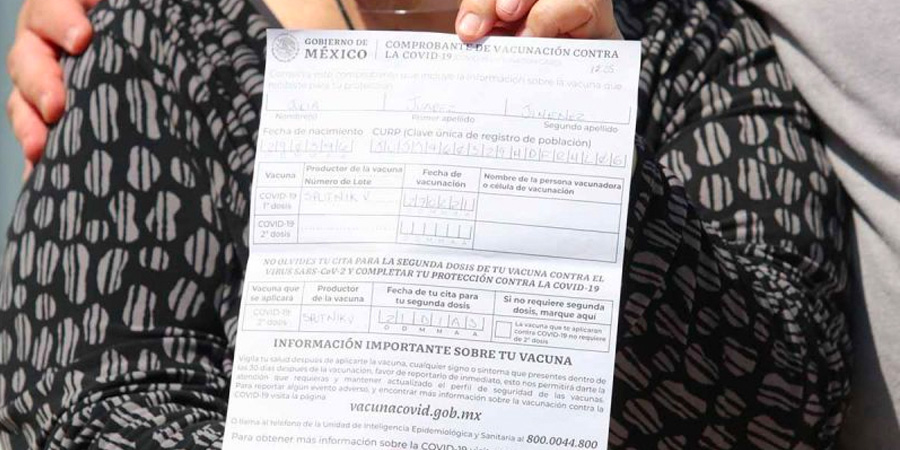 GOBIERNO DE MÉXICO
COMPROBANTE DE VACUNACIÓN CONTRA
LA COVID-19
Conserva este comprobante que incluye la información sobre la vacuna que
recibiste para tu protección
JULIA JUAREZ JIMENEZ
Nombre(s) Primer apellido Segundo apellido
Fecha de nacimiento CURP (Clave única de registro de población)
Vacuna Productor de la vacuna Número de Lote Fecha de vacunación Nombre de la persona vacunadora o célula de vacunación
COVID-19 1ª dosis SPUTNIK V
COVID-19 2ª dosis
NO OLVIDES TU CITA PARA LA SEGUNDA DOSIS DE TU VACUNA CONTRA EL
VIRUS SARS-CoV-2 Y COMPLETAR TU PROTECCIÓN CONTRA LA COVID-19
Vacuna que se aplicará Productor de la vacuna Fecha de tu cita para tu segunda dosis Si no requiere segunda dosis, marque aquí
COVID-19 2ª dosis SPUTNIK V 21 DIAS
D D M M A A
La vacuna que te aplicaran contra COVID-19 no requiere de 2ª dosis
INFORMACIÓN IMPORTANTE SOBRE TU VACUNA
Vigila tu salud después de aplicarte la vacuna, cualquier signo o síntoma que presentes dentro de
los 30 días después de la vacunación, favor de reportarlo de inmediato, esto nos permitirá darte la
atención que requieras y mantener actualizado el perfil de seguridad de las vacunas.
Para reportar algún evento adverso, y encontrar más información sobre la vacunación contra la
COVID-19 visita la página
vacunacovid.gob.mx
O llama al teléfono de la Unidad de Inteligencia Epidemiológica y Sanitaria al 800.0044.800
Para obtener más información sobre la COVID-19